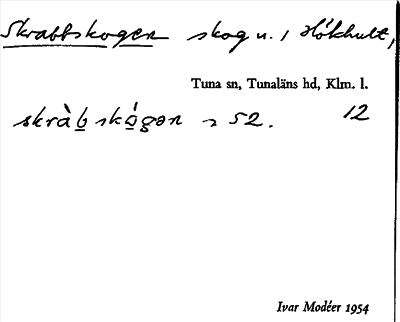 Skrabbskogen skog n. i Hökhult,
Tuna sn, Tunaläns hd, Klm. l.
skràb̲skó̲gən 52. 12
Ivar Modéer 1954